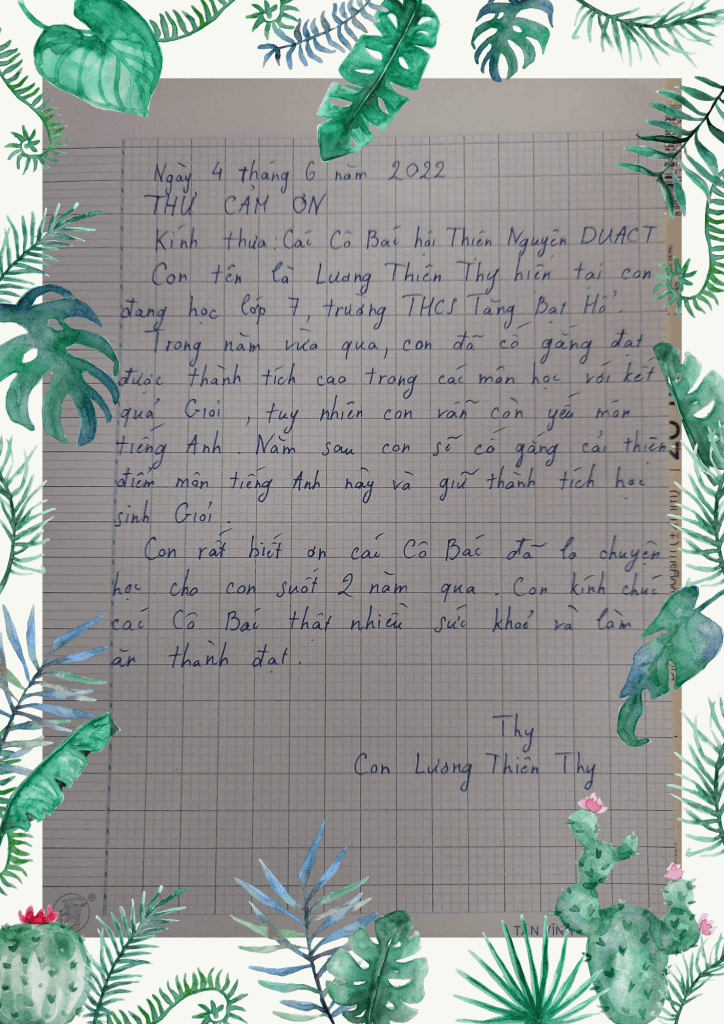 Ngày 4 tháng 6 năm 2022
THƯ CẢM ƠN
Kính thưa: Các Cô Bác hội Thiện Nguyện DUACT
Con tên là Lương Thiên Thy hiện tại con
đang học lớp 7, trường THCS Tăng Bạt Hổ.
Trong năm vừa qua, con đã cố gắng đạt
được thành tích cao trong các môn học với kết
quả Giỏi, tuy nhiên con vẫn còn yếu môn
tiếng Anh. Năm sau con sẽ cố gắng cải thiện
điểm môn tiếng Anh này và giữ thành tích học
sinh Giỏi.
Con rất biết ơn các Cô Bác đã lo chuyện
học cho con suốt 2 năm qua. Con kính chúc
các Cô Bác thật nhiều sức khoẻ và làm
ăn thành đạt.
Thy
Con Lương Thiên Thy